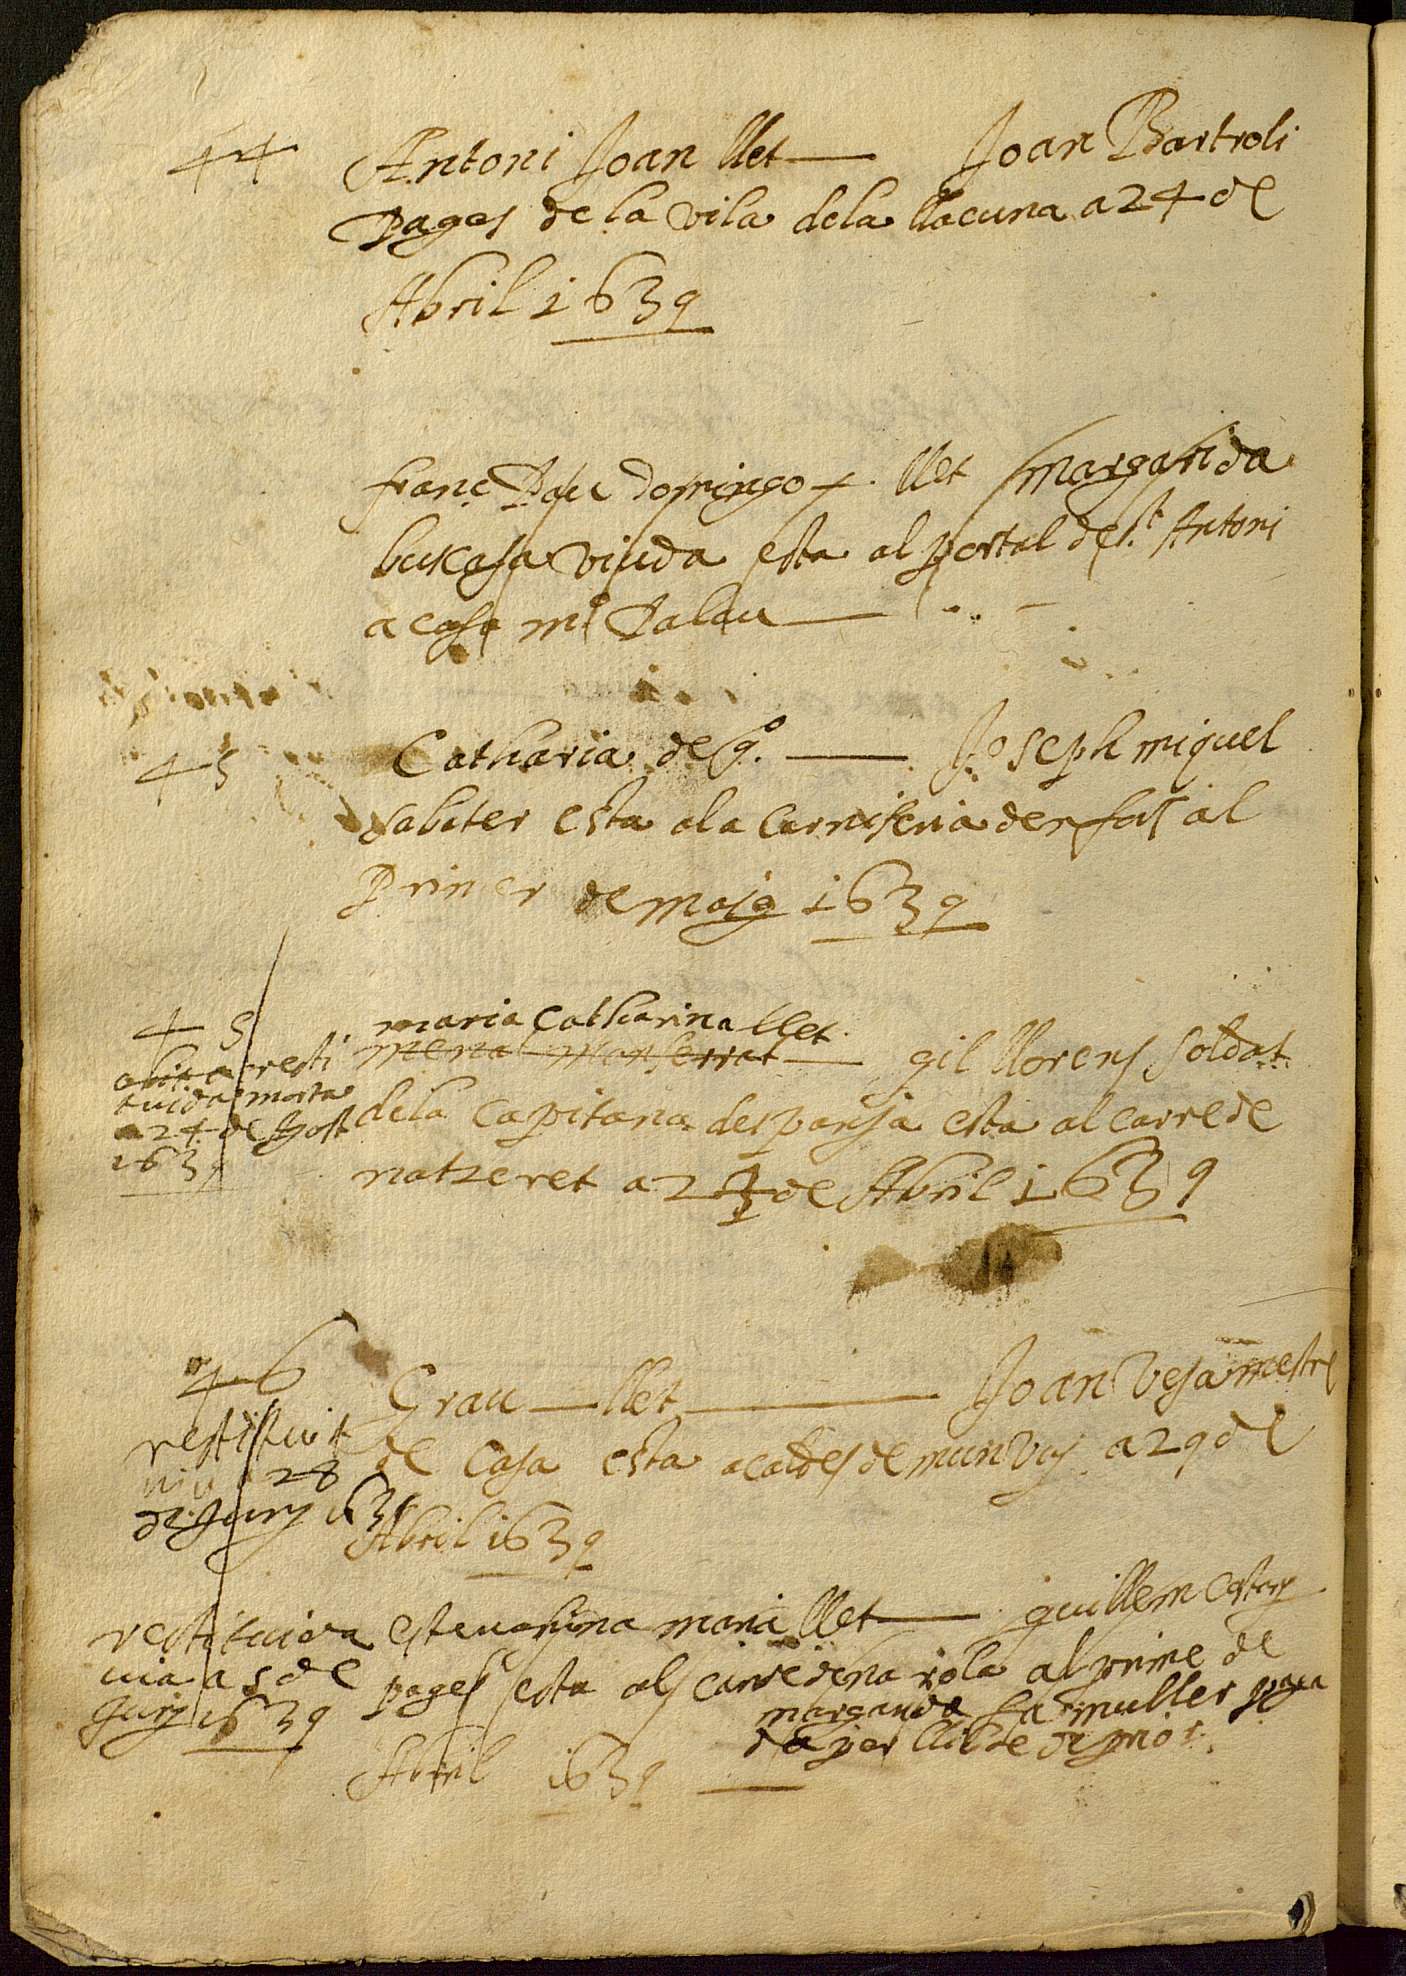 44
Antoni Joan llet — Joan Bartroli
Pages de la vila dela llacuna a 24 de
Abril 1639
franc Pau domingo +. llet margarida
buscasa viuda esta al portal de s.t Antoni
a casa m.o Palau —
45
Catharia de g.o — Joseph miquel
sabater esta ala carniseria den fos al
Primer de maig 1639
45
abita resti
tuida morta
a 24 de Agost
1639
maria Catharina llet
menal monserrat — gil llorens soldat
dela Capitana despanja esta al carre de
natzeret a 2 de Abril 1639
46
restituit
viu 28
de Juny 1639
Grau — llet — Joan Vesa mestre
de Casa esta a caldes de munbuy a 29 de
Abril 1639
restituida
viua a 5 de
Juny 1639
estevanina maria llet — guillem
pages esta al carre dena rola al prime de
Abril 1639 —
margarida sa muller
da per llit de